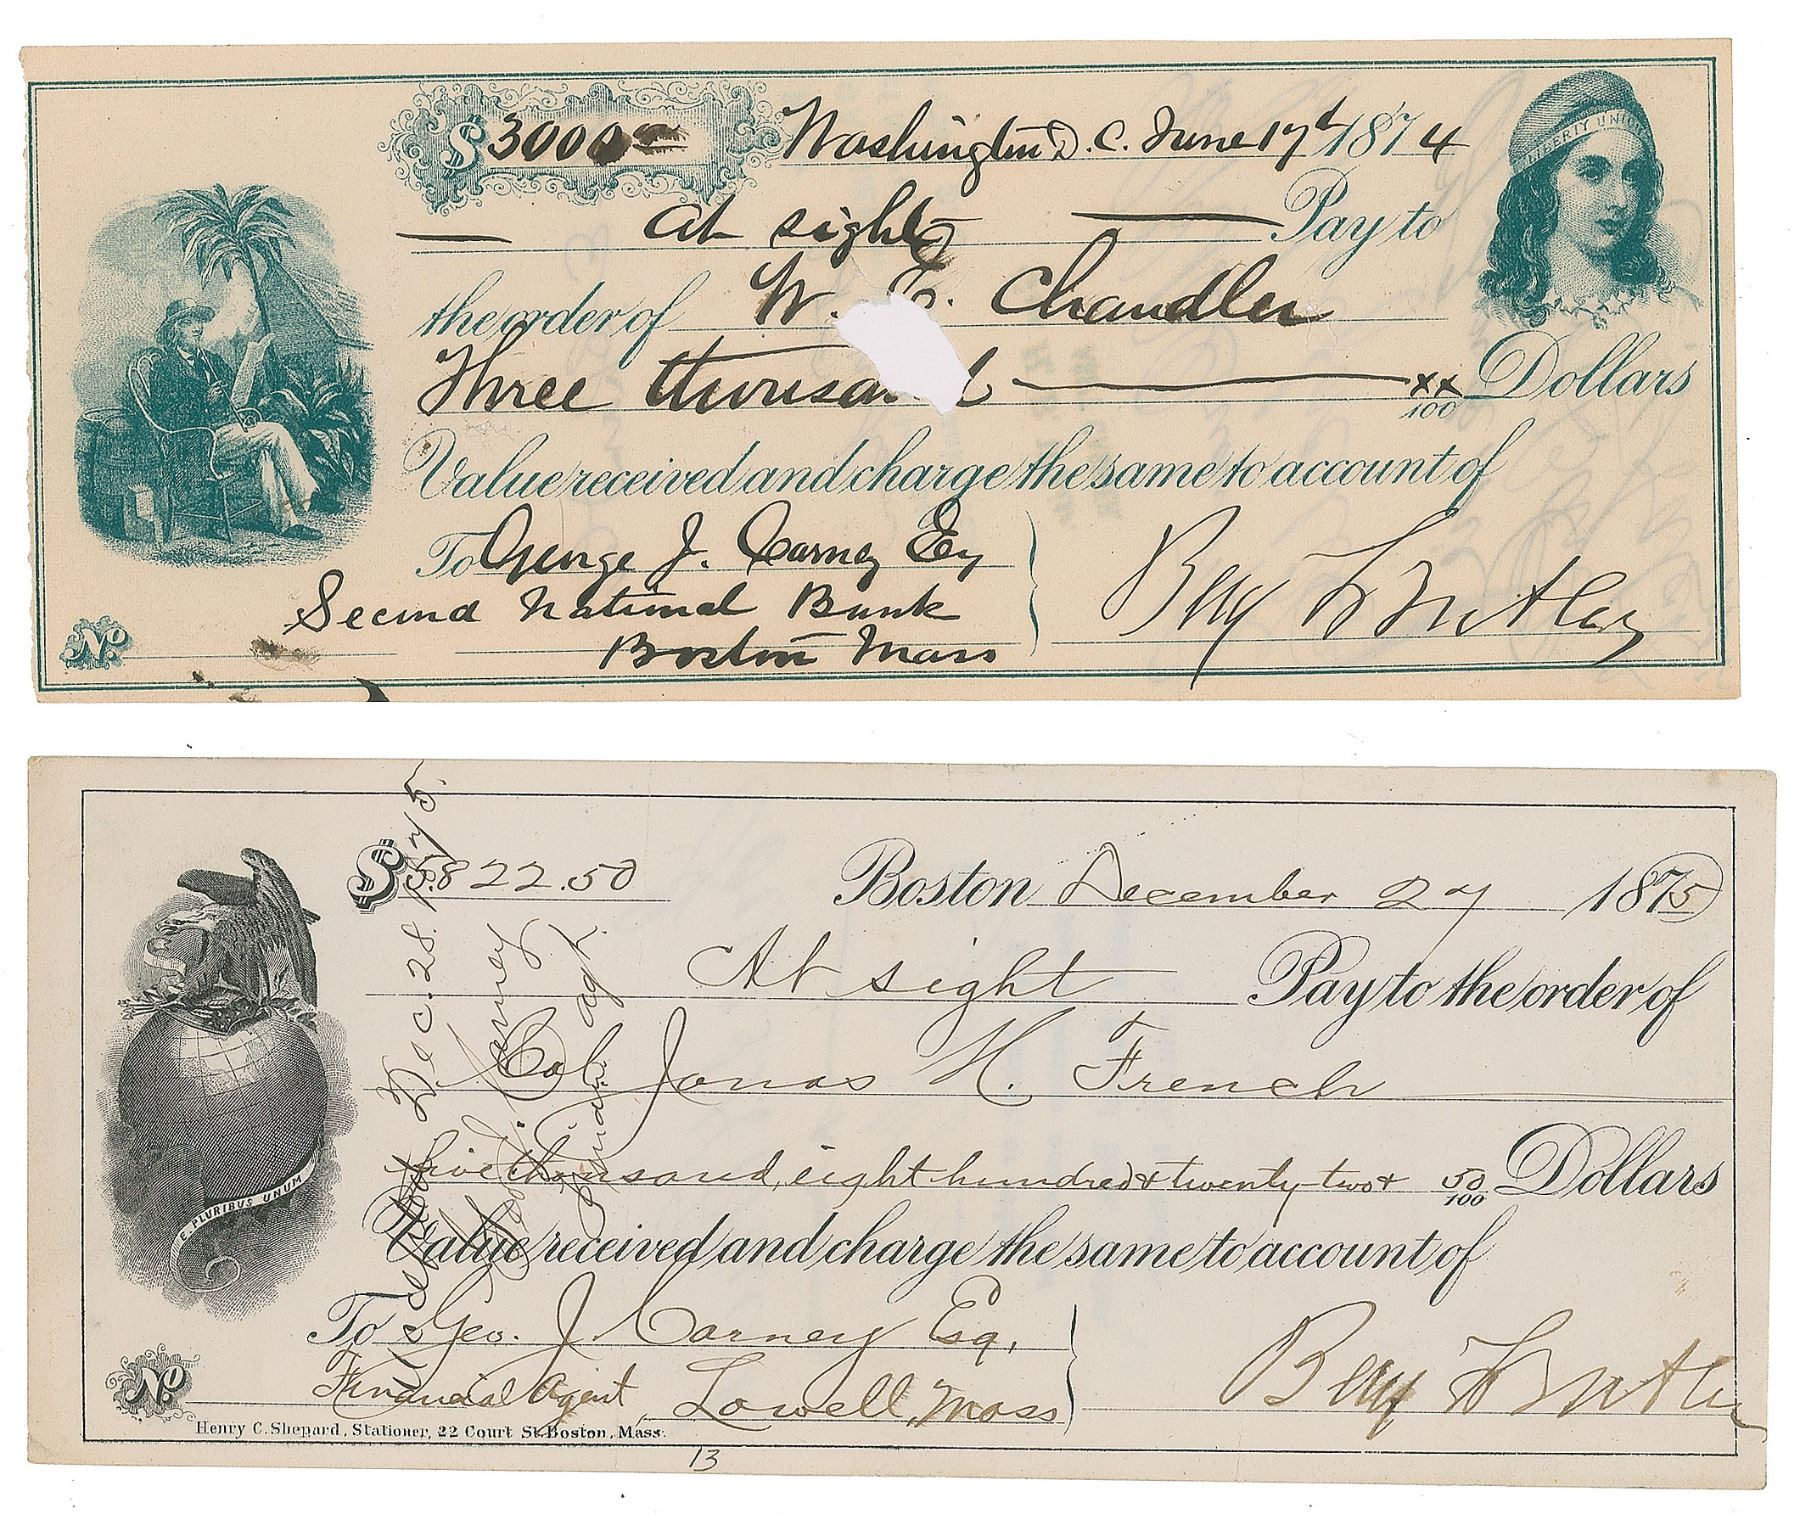 $3000 00/100 Washington D.C. June 17th 1874
LIBERTY UNION
At sight Pay to
the order of W. E. Chandler
Three thousand xx/100 Dollars
Value received and charge the same to account of
To George J. Carney Esq
Second National Bank
Boston Mass
Benj F Butler
No
$5822.50 Boston December 27 1875
At sight Pay to the order of
Col. Jonas H. French
five thousand, eight hundred & twenty-two & 50/100 Dollars
Value received and charge the same to account of
To Geo. J. Carney Esq,
Financial Agent, Lowell, Mass
Benj F Butler
No
E. PLURIBUS UNUM
Henry C. Shepard, Stationer, 22 Court St. Boston, Mass.
13
Dec. 28. 1875.
Geo. J. Carney
Financial agt.